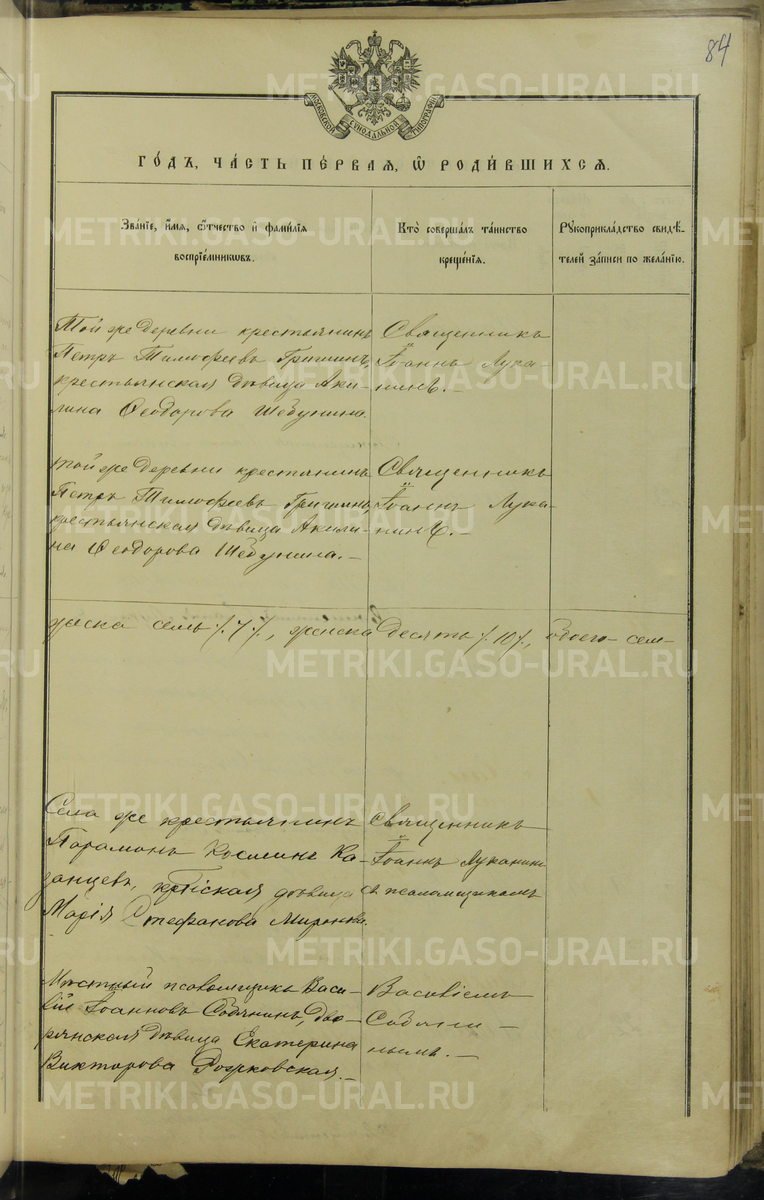 84
МОСКОВСКОЙ СѴНОДАЛЬНОЙ ТИПОГРАФІИ
METRIKI.GASO-URAL.RU
ГО́ДЪ, ЧА́СТЬ ПЕ́РВАЯ, Ѡ РОДИ́ВШИХСЯ.
Зва́ніе, и́мя, ѻ҆́тчество и҆ фами́лія
воспрїе́мникѡвъ.
Кто̀ соверша́лъ та́инство
креще́нїя.
Рꙋкоприкла́дство свидѣ́-
телей за́писи по жела́нїю.
Той же деревни крестьянинъ
Петръ Тимофеевъ Гришинъ,
крестьянская дѣвица Аки-
лина Ѳеодорова Шебунина.
Священникъ
Іоаннъ Лука-
нинъ.-
той же деревни крестянинъ
Петръ Тимоѳеевъ Гришинъ,
крестьянская дѣвица Акили-
на Ѳеодорова Шебунина.-
Священникъ
Іоаннъ Лука-
нинъ.-
мужска семь /.7./, женска десять /.10/., обоего сем-
Села же крестьянинъ
Парамонъ Косминъ Ка-
занцевъ, кр҃тьская дѣвица
Марія Стефанова Миронова.
Священникъ
Іоаннъ Луканинъ
съ псаломщикомъ
Мѣстный псаломщикъ Васи-
лій Іоанновъ Собянинъ, дво-
рянская дѣвица Екатерина
Викторова Рожковская.-
Василіемъ
Собяни-
нымъ.-